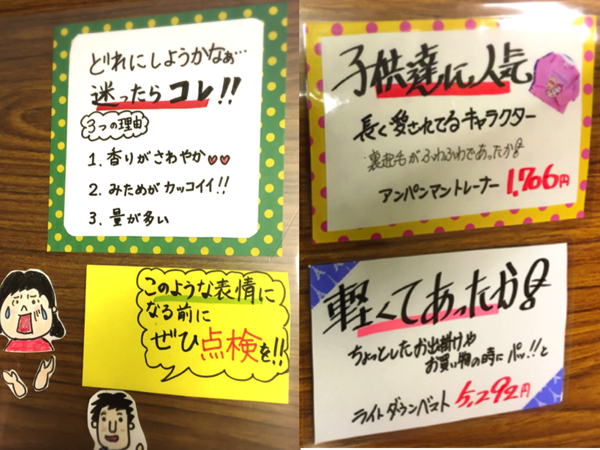 どれにしようかなぁ…
迷ったら コレ!!
3つの理由
1. 香りがさわやか♥♥
2. みためがカッコイイ!!
3. 量が多い
このような表情に
なる前に
ぜひ点検を!!
子供達に人気
長く愛されてるキャラクター
裏起毛がふわふわであったか
アンパンマントレーナー 1,766円
軽くてあったか
ちょっとしたお出掛けや
お買い物の時にパッ!!と
ライトダウンベスト 5,292円